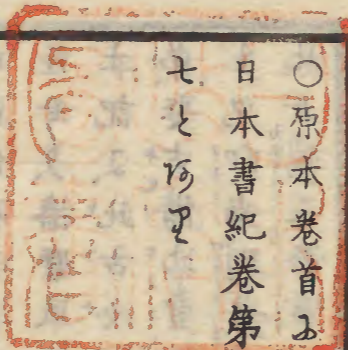 ○原本巻首に
日本書紀巻第
七と阿里